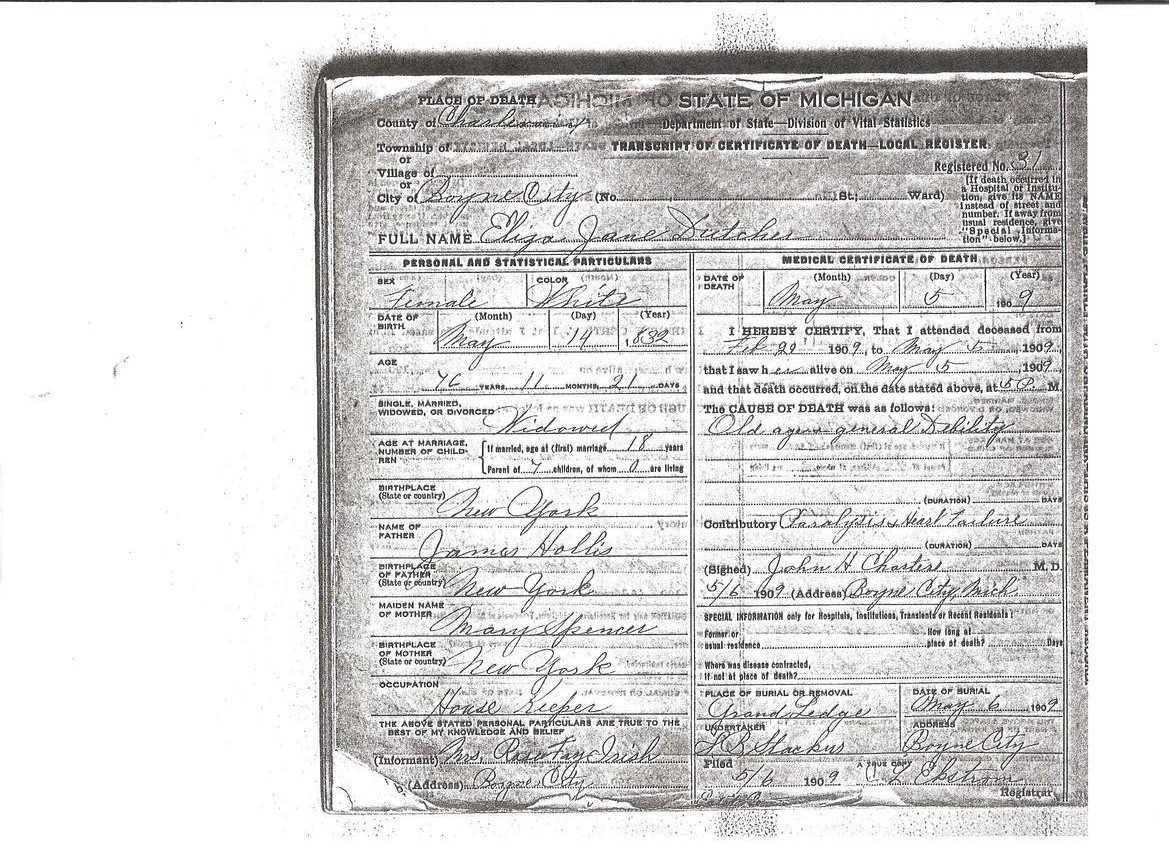 PLACE OF DEATH
STATE OF MICHIGAN
County of Charlevoix
Department of State—Division of Vital Statistics
Township of
TRANSCRIPT OF CERTIFICATE OF DEATH—LOCAL REGISTER
or
Village of
Registered No. 31
or
City of Boyne City (No. St.; Ward)
[If death occurred in
a Hospital or Institu-
tion, give its NAME
instead of street and
number. If away from
usual residence, give
"Special Informa-
tion" below.]
FULL NAME Eliza Jane Dutcher
PERSONAL AND STATISTICAL PARTICULARS
SEX
Female
COLOR
White
DATE OF
BIRTH
(Month) (Day) (Year)
May 14 1832
AGE
76 YEARS, 11 MONTHS, 21 DAYS
SINGLE, MARRIED,
WIDOWED, OR DIVORCED
Widowed
AGE AT MARRIAGE,
NUMBER OF CHILD-
REN
If married, age at (first) marriage 18 years
Parent of 7 children, of whom 0 are living
BIRTHPLACE
(State or country)
New York
NAME OF
FATHER
James Hollis
BIRTHPLACE
OF FATHER
(State or country)
New York
MAIDEN NAME
OF MOTHER
Mary Spencer
BIRTHPLACE
OF MOTHER
(State or country)
New York
OCCUPATION
House Keeper
THE ABOVE STATED PERSONAL PARTICULARS ARE TRUE TO THE
BEST OF MY KNOWLEDGE AND BELIEF
(Informant) Mrs. Irish
(Address) Boyne City
MEDICAL CERTIFICATE OF DEATH
DATE OF
DEATH
(Month) (Day) (Year)
May 5 1909
I HEREBY CERTIFY, That I attended deceased from
Feb 1909, to May 5, 1909,
that I saw her alive on May 5, 1909,
and that death occurred, on the date stated above, at 5 P. M.
The CAUSE OF DEATH was as follows:
Old age general Debility
(DURATION) DAYS
Contributory Paralysis Heart Failure
(DURATION) DAYS
(Signed) John H M. D.
5/6 1909 (Address) Boyne City Mich.
SPECIAL INFORMATION only for Hospitals, Institutions, Transients or Recent Residents:
Former or
usual residence
How long at
place of death? Days
Where was disease contracted,
if not at place of death?
PLACE OF BURIAL OR REMOVAL
Grand Ledge
DATE OF BURIAL
May 6 1909
UNDERTAKER
ADDRESS
Boyne City
Filed
5/6 1909
A TRUE COPY
L Ekstrom
Registrar